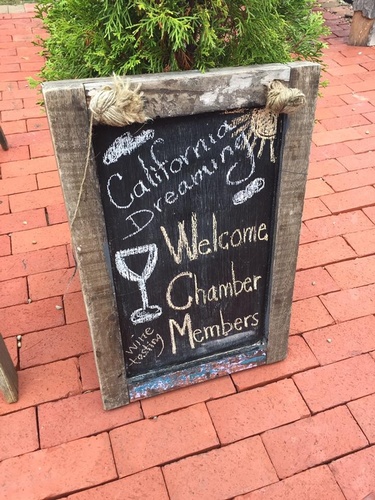 California
Dreaming
Welcome
Chamber
Members
Wine
tasting